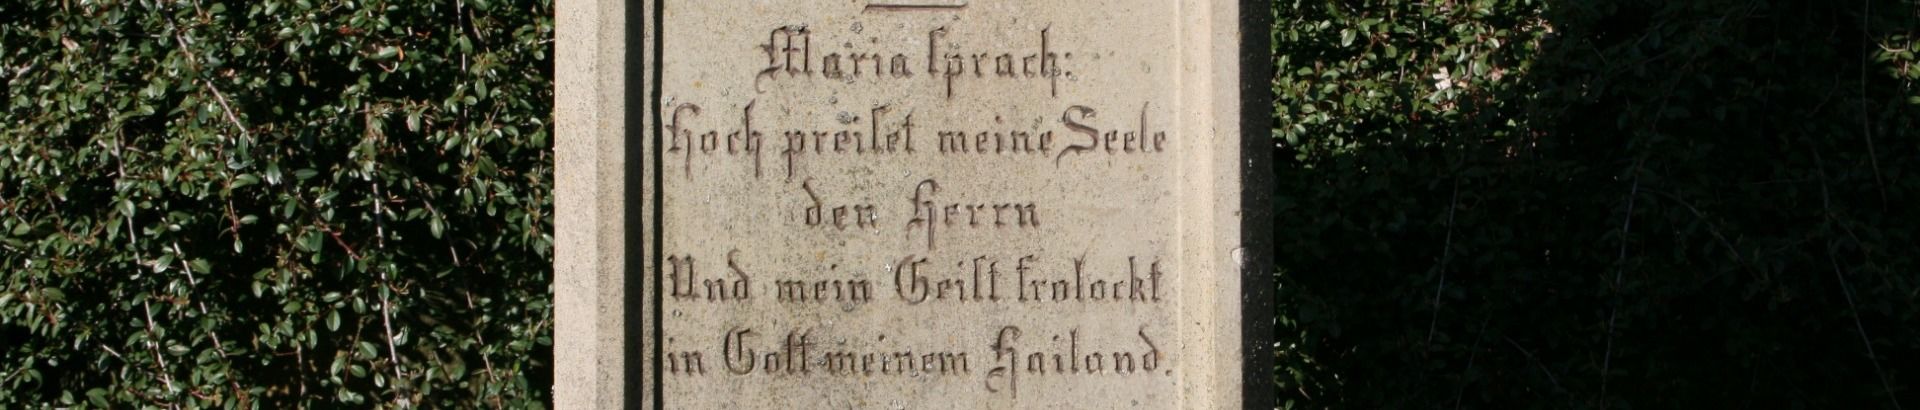 Maria ſprach:
Hoch preiſet meine Seele
den Herrn
Und mein Geiſt frolockt
in Gott meinem Hailand.